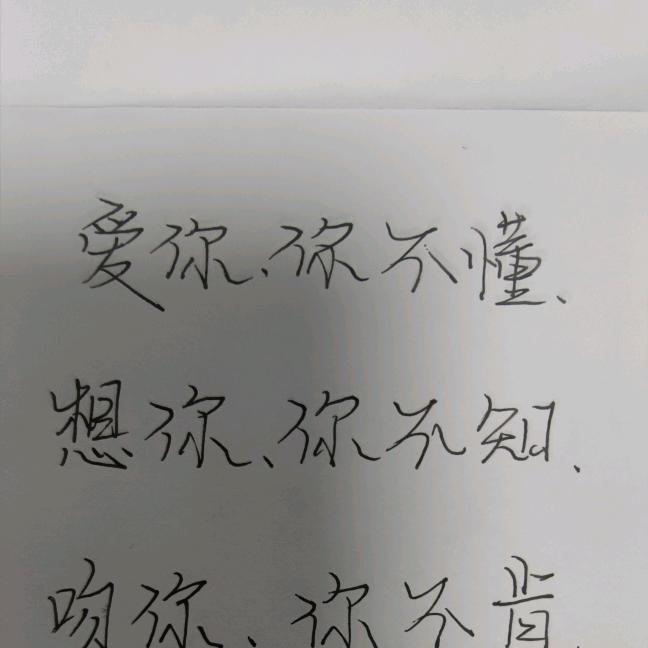 爱你、你不懂、
想你、你不知、
吻你、你不肯、